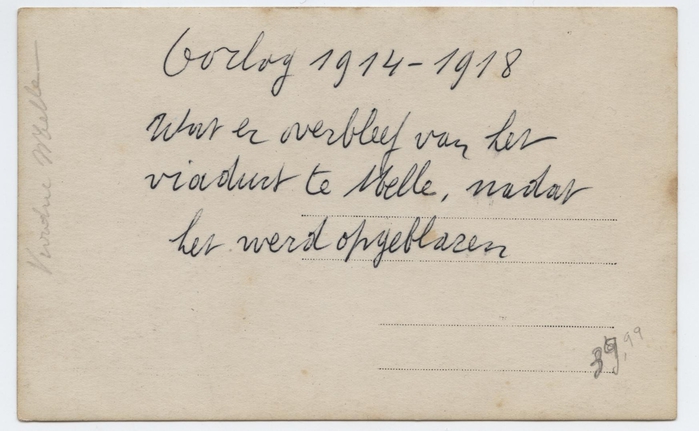 Oorlog 1914-1918
Wat er overbleef van het
viaduct te Melle, nadat
het werd opgeblazen
Melle
39,99